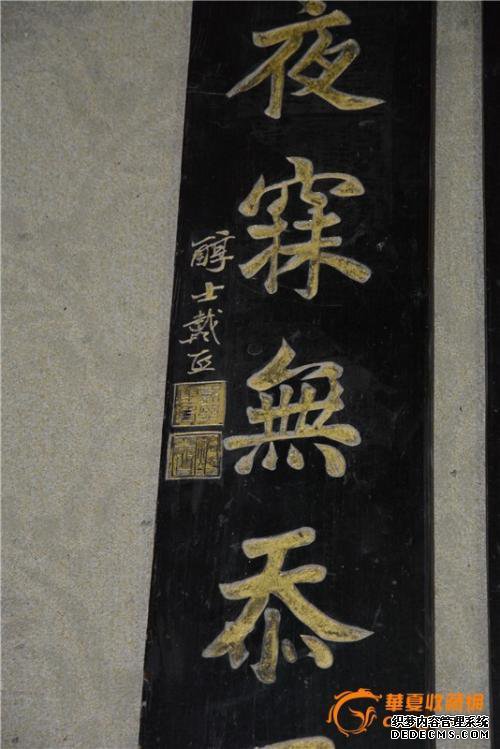 夜寐無忝
醇士戴熙
華夏收藏網
织梦内容管理系统
DEDECMS.COM